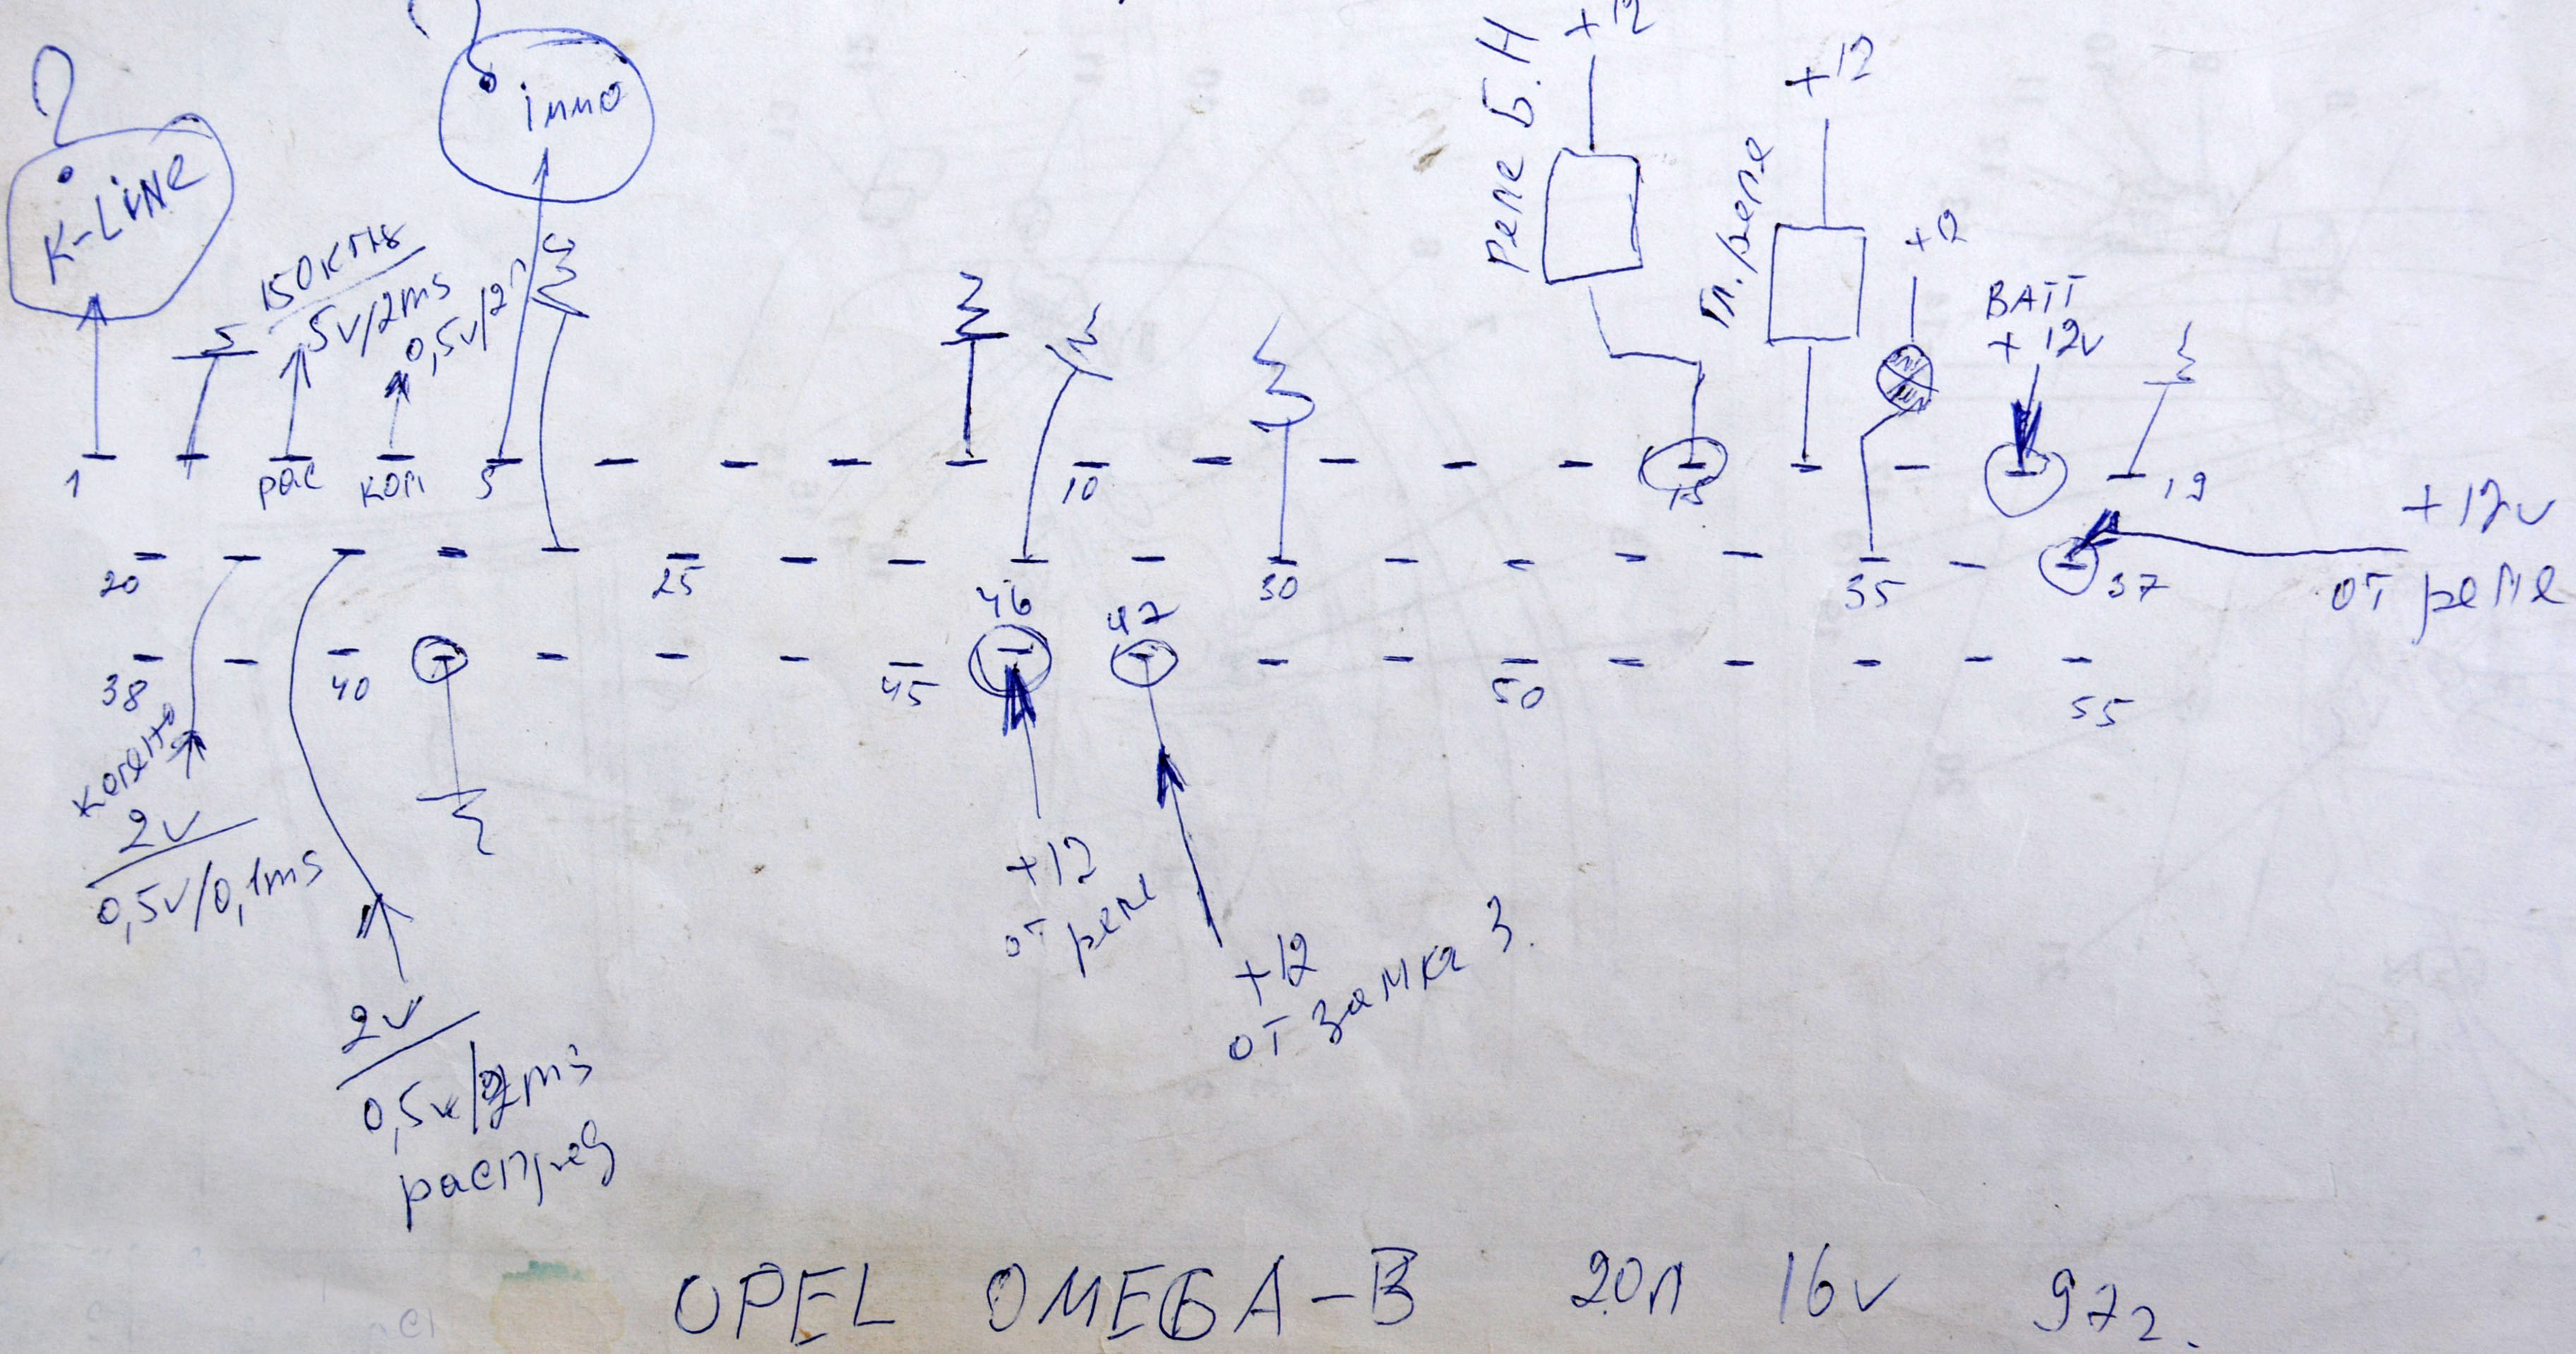 +12
+12
Реле Б.Н
Гл. реле
immo
K-Line
150кГц
5v/2ms
0,5v/2
BATT
+12v
1
рас
кол
5
10
15
19
+12v
от реле
20
25
30
35
37
46
47
38
40
45
50
55
колено
2v
0,5v/0,1ms
+12
от реле
+12
от замка З.
2v
0,5v/2ms
распред
OPEL OMEGA-B 2.0л 16v 97г.